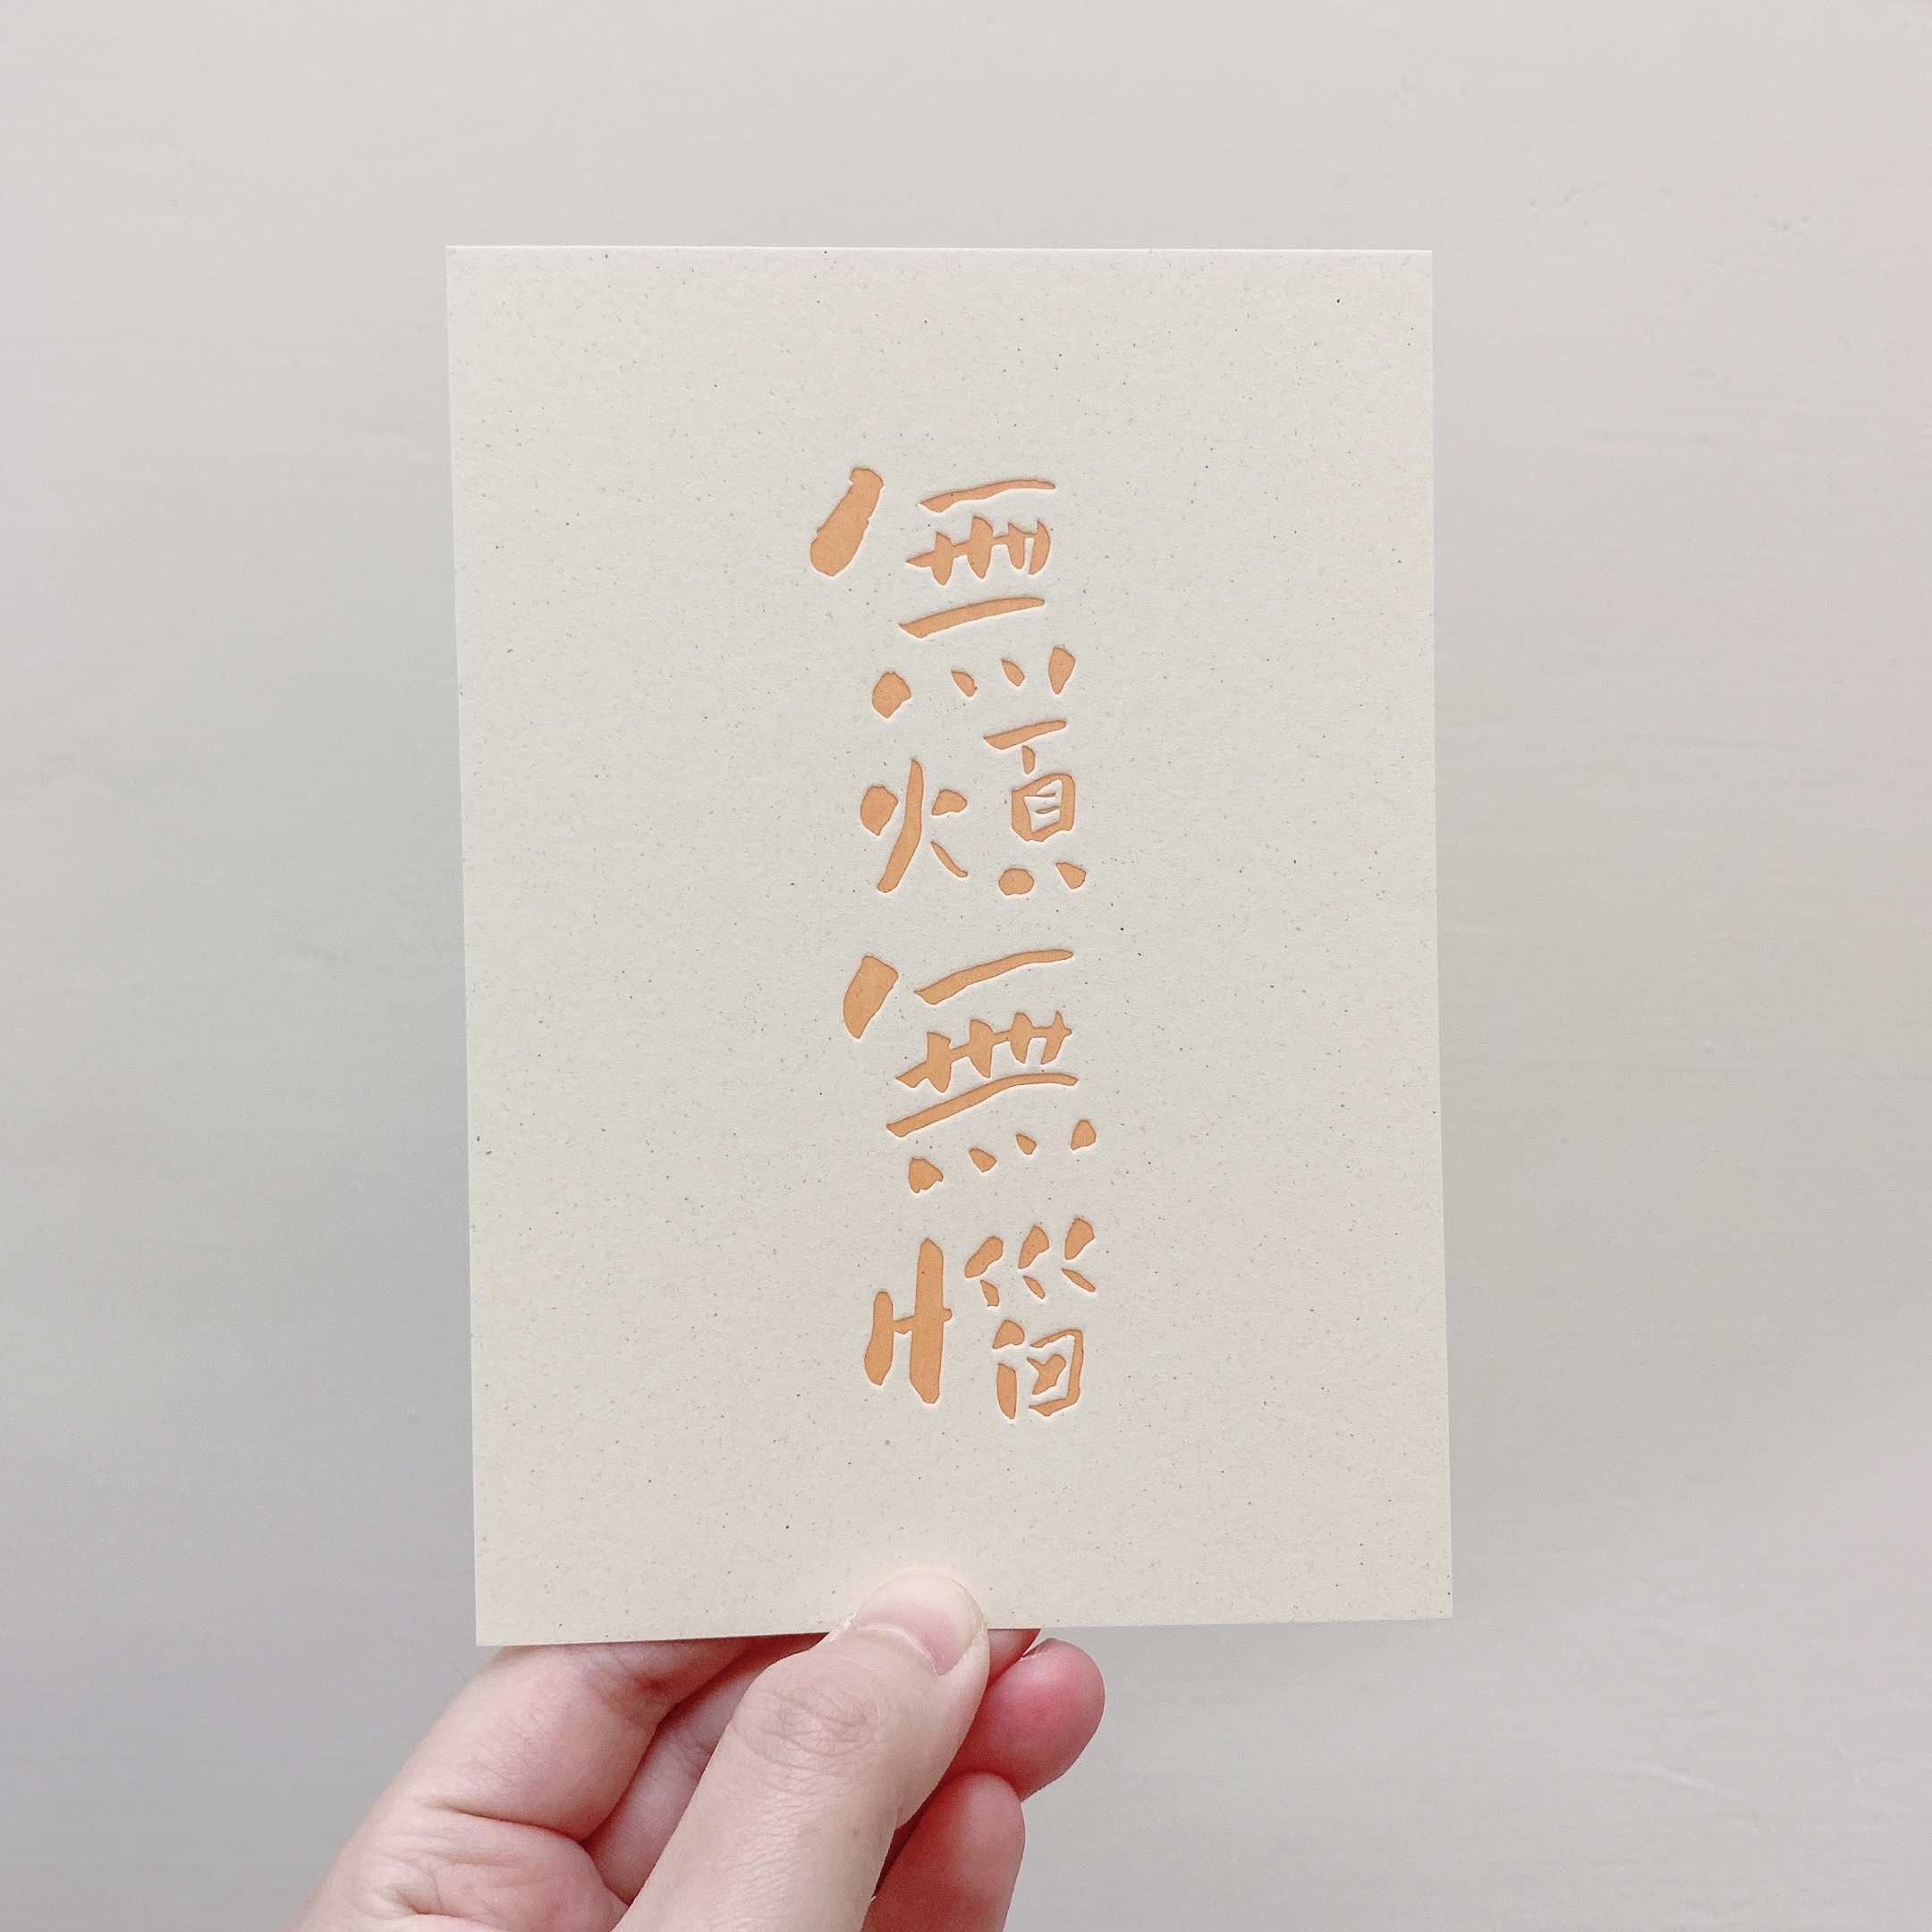 無煩無惱